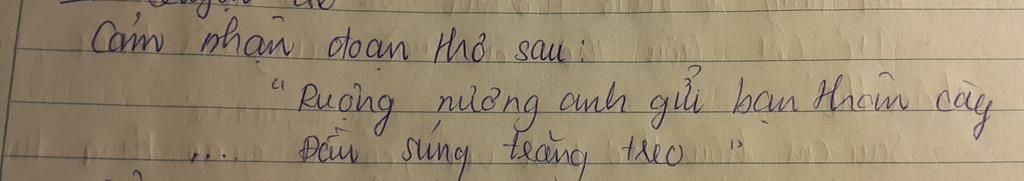 Cảm nhận đoạn thơ sau:
"Ruộng nương anh gửi bạn thân cày
... Đầu súng trăng treo"